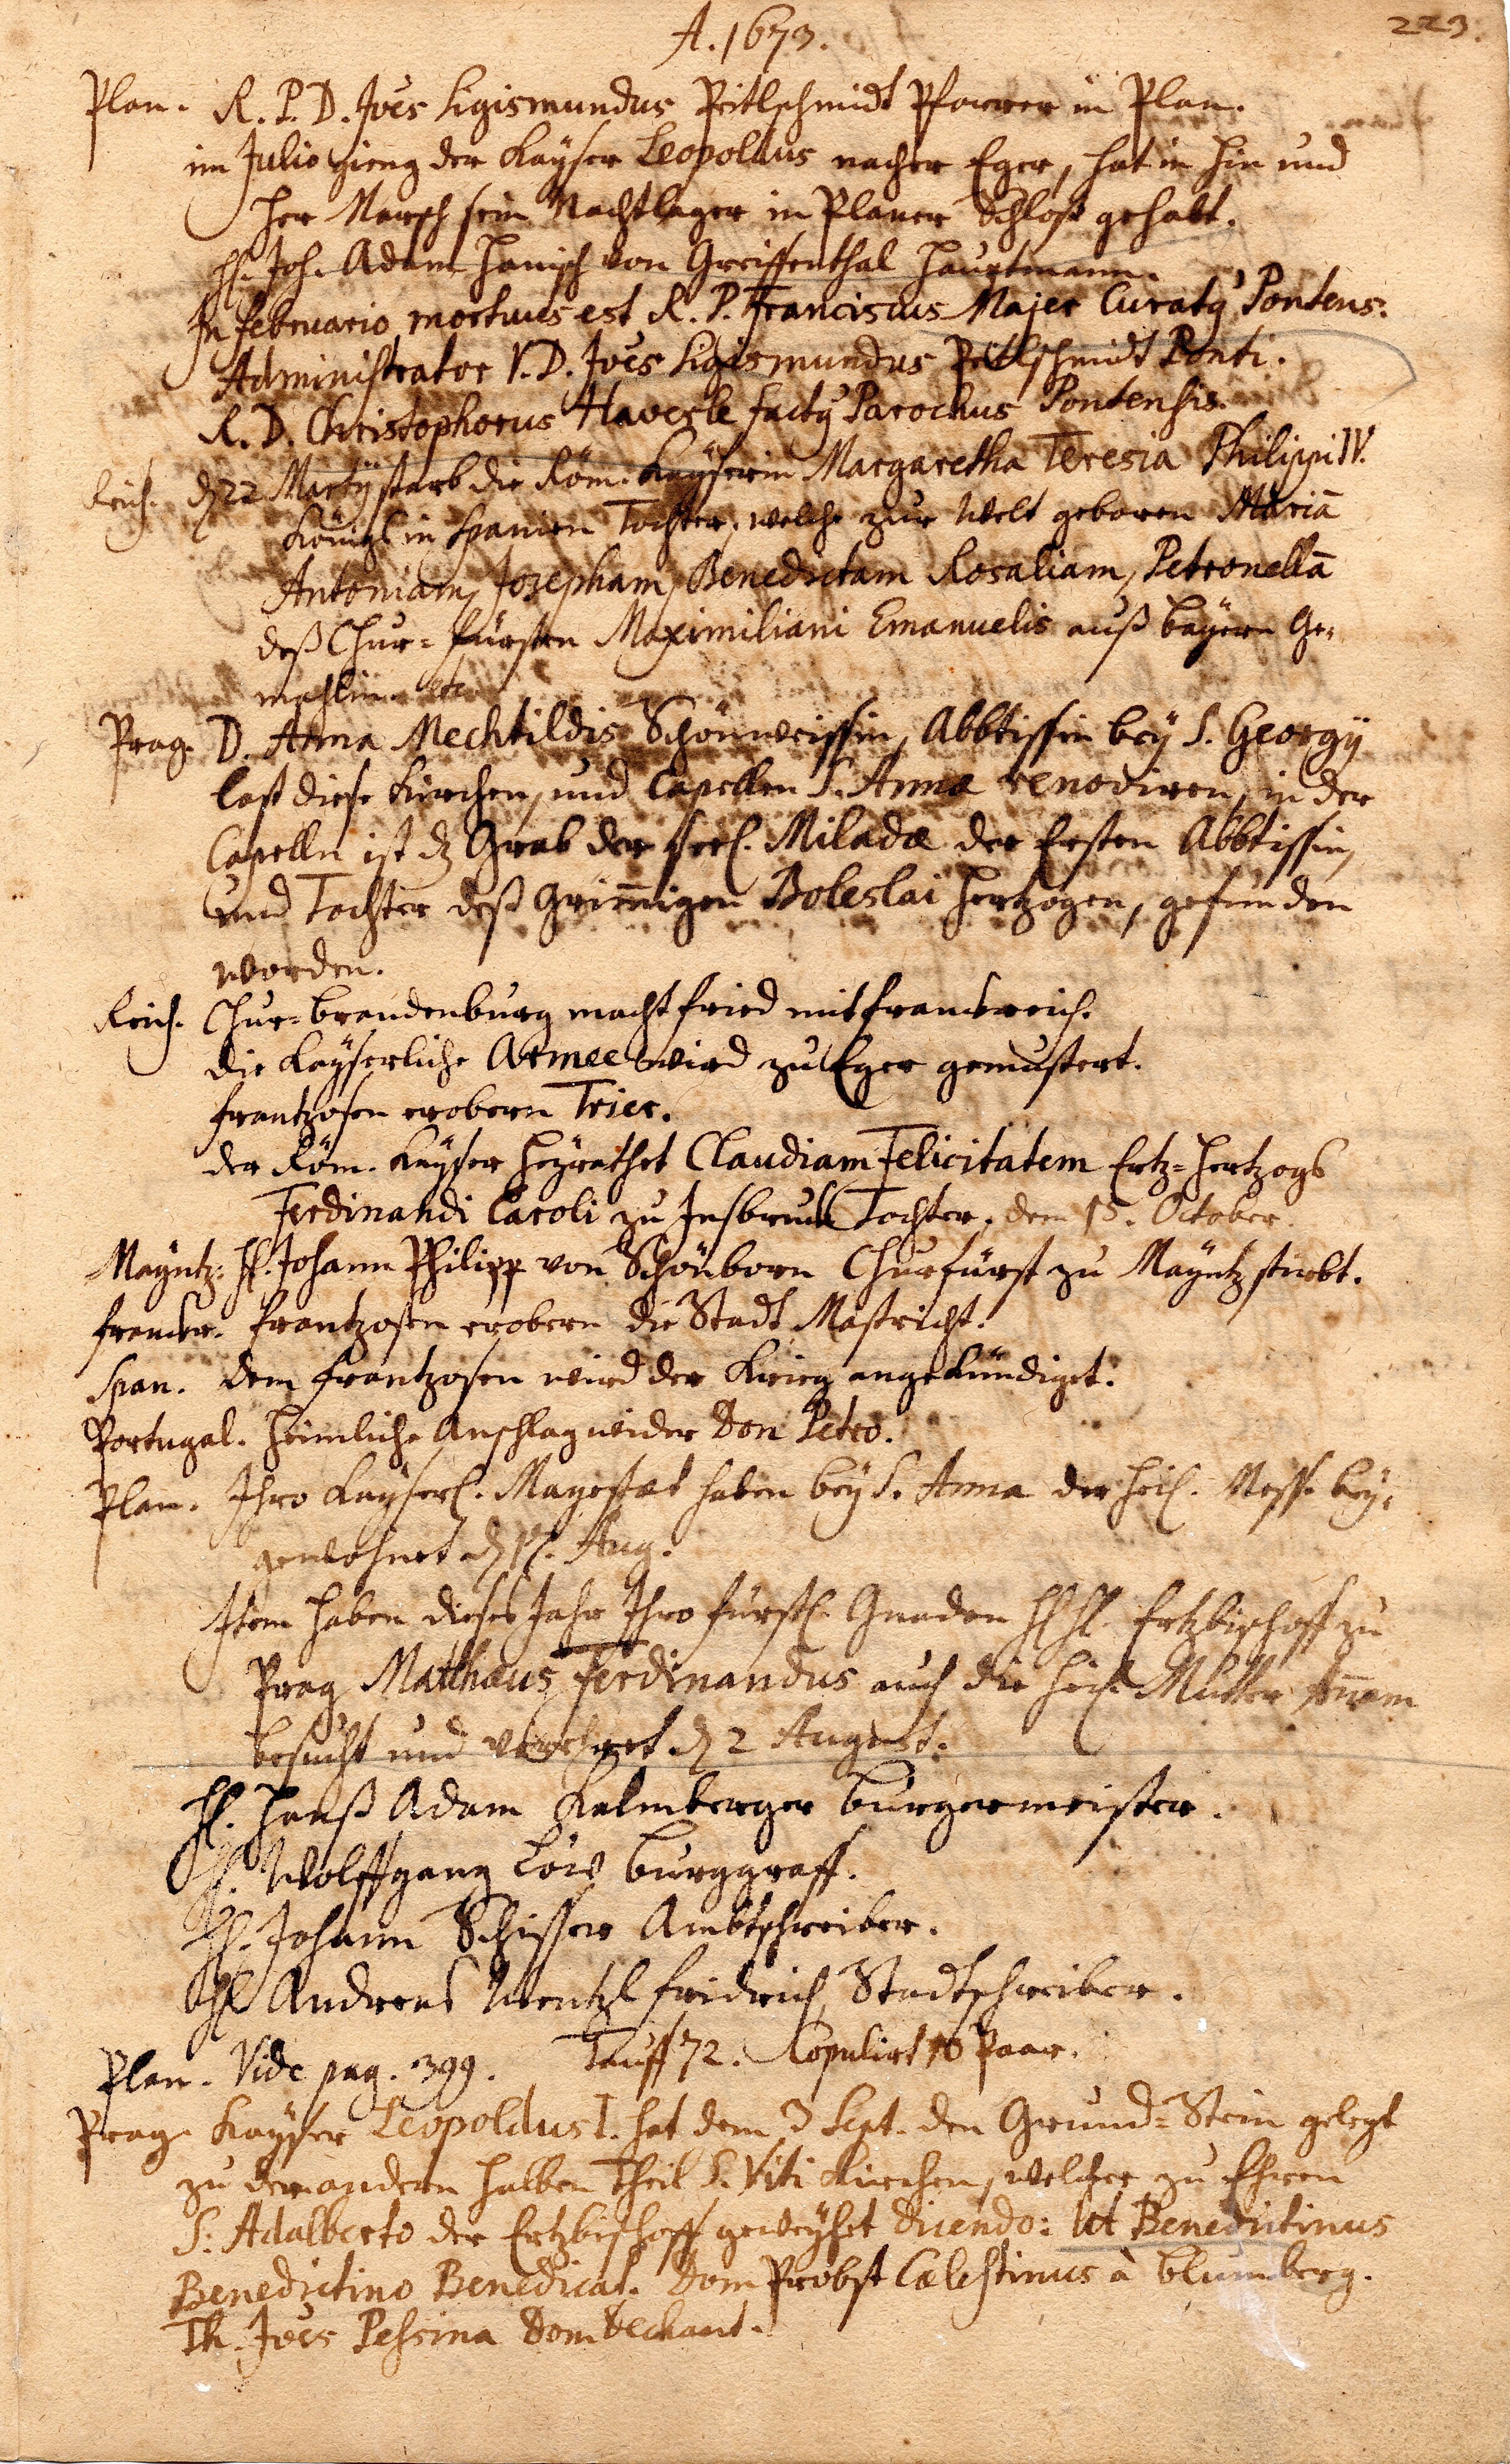 223.
A. 1673.
Plan. R. P. D. Joes Sigismundus Peitlschmidt Pfarrer in Plan.
im Julio gieng der Kayser Leopoldus nacher Eger, hat in hin und
her Marsch sein Nachtlager in Planer Schloß gehabt.
H. Joh. Adam Hanisch von Greiffenthal Hauptmann.
In februario mortuus est R. P. Franciscus Majer Curatq Pontens.
Administrator V. D. Joes Sigismundus Peitlschmidt Ponti.
R. D. Christophorus Haverle factq Parochus Pontensis.
Reich. dz 22 Martÿ starb die Röm. Kayserin Margaretha Teresia Philippi IV.
Königs in Spanien Tochter, welche zur Welt geboren Mariā
Antoniam, Josepham, Benedictam Rosaliam, Petronellā
deß Chur=fürsten Maximiliani Emanuelis auß bayern Ge=
mahlin. etc
Prag. D. Anna Mechtildis Schönweissin, Abbtissin bey S. Georgÿ
last diese Kirchen, und Capellen S. Annæ renoviren, in der
Capelln ist dz Grab der seel. Miladæ der Ersten Abbtissin,
und Tochter deß Grim̄igen Boleslai Hertzogen, gefunden
worden.
Reich. Chur=brandenburg macht fried mit franckreich.
die Kayserliche Armee wird zu Eger gemustert.
frantzosen erobern Trier.
der Röm. Kayser Heyrathet Claudiam Felicitatem Ertz=Hertzogs
Ferdinandi Caroli zu Insbruck Tochter. dem 15. October.
Mayntz. H. Johann Philipp von Schönborn Churfürst zu Mayntz stirbt.
franckr. frantzosen erobern die Stadt Mastricht.
Span. dem frantzosen wird der Krieg angekündiget.
Portugal. Heimliche Anschlag wider Don Petro.
Plan. Ihro Kayserl. Mayestæt haben bey S. Anna der heil. Mess bey=
gewohnet dz Aug.
Item haben dieses Jahr Ihro fürstl. Gnaden H H. Ertzbischoff zu
Prag Matthæus Ferdinandus auch die heil. Mutter An̄am
besucht und verehret dz 2 August.
H. Hanß Adam Kalmberger burgermeister.
H. Wolffgang Löw burggraff.
H. Johann Schisser Ambtschreiber.
H Andreas Wentzl fridrich Stadtschreiber.
Plan. Vide pag. 399. Tauff 72. Copulirt 10 Paar.
Prag. Kayser Leopoldus I. hat dem 3 Sept. den Grund=Stein gelegt
zu dem andern halben Theil S. Viti Kirchen, welcher zu Ehren
S. Adalberto der Ertzbischoff geweyhet dicendo: Ut Benedictinus
Benedictino Benedicat. Dom Probst Cælestinus à blumberg.
Th. Joes Pessina Dom Dechant.